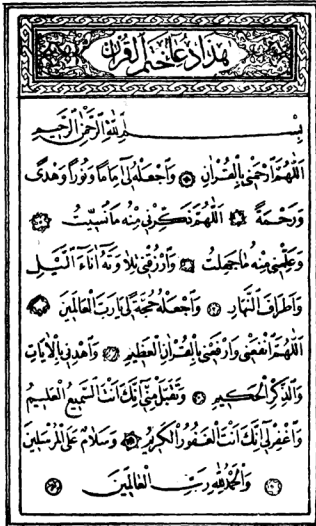 هذا دعاء ختم القرآن
بسم الله الرحمن الرحيم
اَللّٰهُمَّ ارْحَمْنِي بِالْقُرْاٰنِ وَاجْعَلْهُ لِي اِمَامًا وَنُورًا وَهُدًى
وَرَحْمَةً اَللّٰهُمَّ ذَكِّرْنِي مِنْهُ مَا نُسِّيتُ
وَعَلِّمْنِي مِنْهُ مَا جَهِلْتُ وَارْزُقْنِي تِلَاوَتَهُ اٰنَاءَ الَّيْلِ
وَاَطْرَافَ النَّهَارِ وَاجْعَلْهُ حُجَّةً لِي يَا رَبَّ الْعَالَمِينَ
اَللّٰهُمَّ انْفَعْنِي وَارْفَعْنِي بِالْقُرْاٰنِ الْعَظِيمِ وَاهْدِنِي بِالْاٰيَاتِ
وَالذِّكْرِ الْحَكِيمِ وَتَقَبَّلْ مِنِّي اِنَّكَ اَنْتَ السَّمِيعُ الْعَلِيمُ
وَاغْفِرْ لِي اِنَّكَ اَنْتَ الْغَفُورُ الْكَرِيمُ وَسَلَامٌ عَلَى الْمُرْسَلِينَ
وَالْحَمْدُ لِلّٰهِ رَبِّ الْعَالَمِينَ